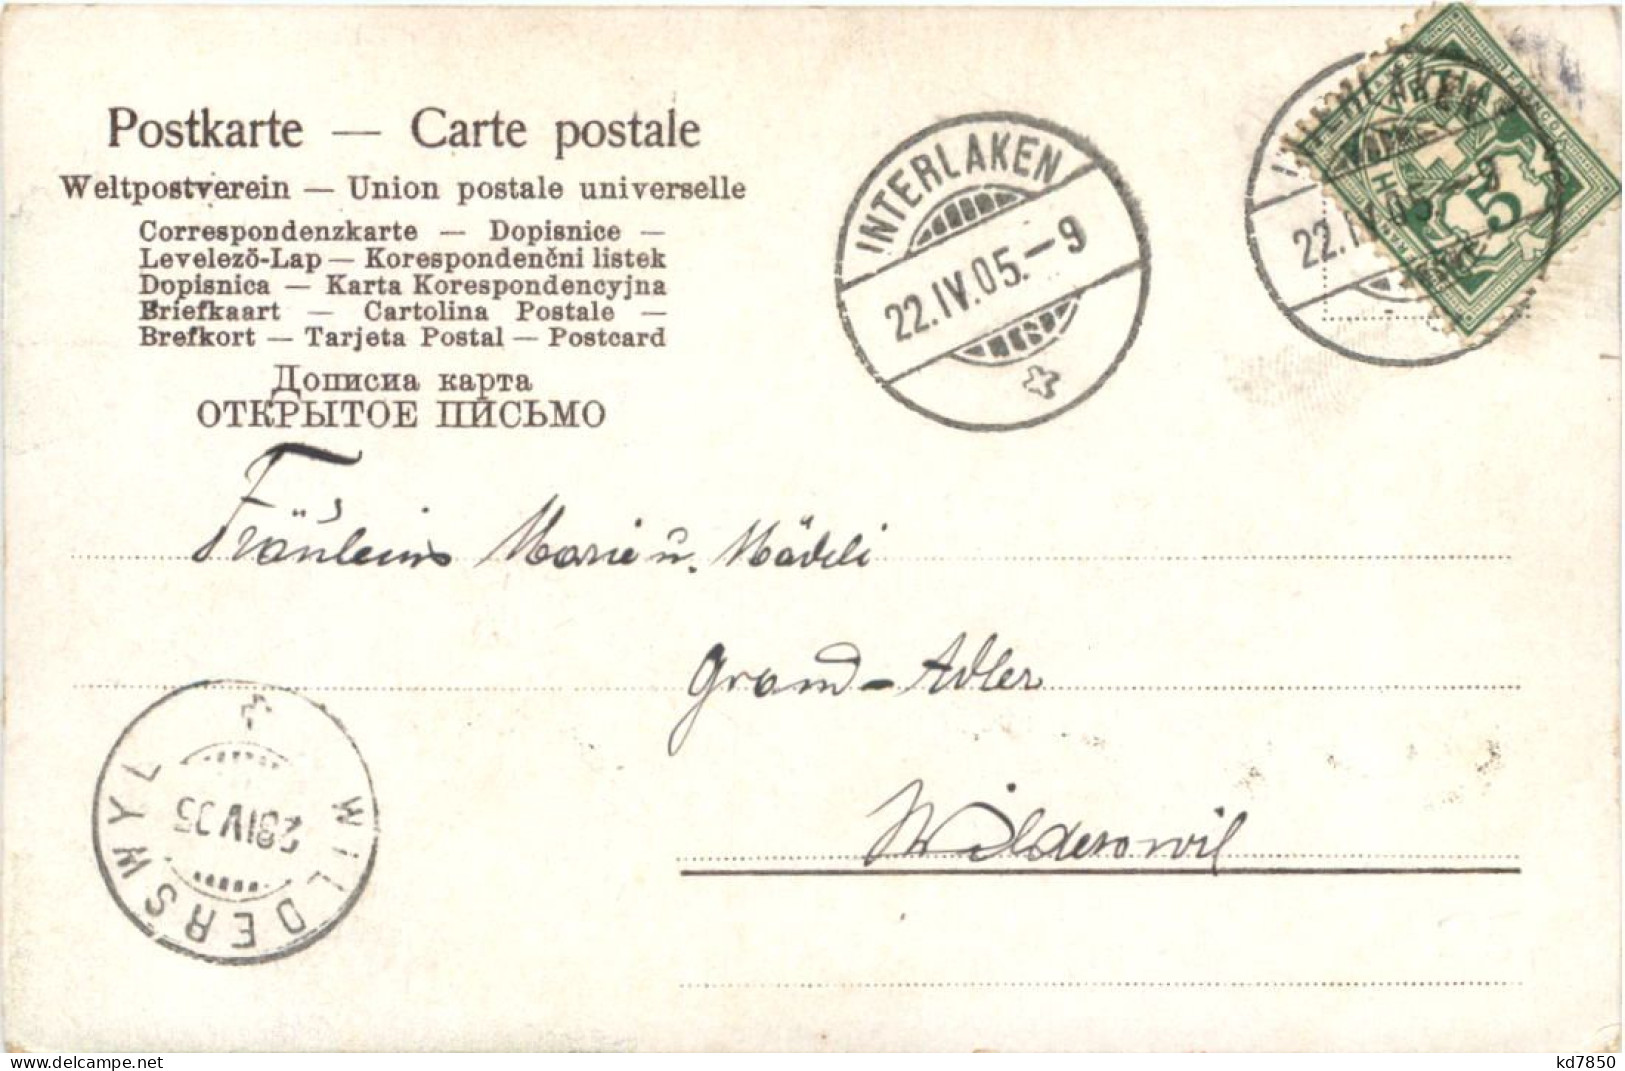 Postkarte — Carte postale
Weltpostverein — Union postale universelle
Correspondenzkarte — Dopisnice —
Levelező-Lap — Korespondenčni listek
Dopisnica — Karta Korespondencyjna
Briefkaart — Cartolina Postale —
Brefkort — Tarjeta Postal — Postcard
Дописиа карта
ОТКРЫТОЕ ПИСЬМО
INTERLAKEN
22.IV.05.-9
INTERLAKEN
22.IV.05.-9
FRANCO
5
Fräulein Marie u. Mädeli
Grand-Adler
Wilderswil
WILDERSWYL
IV.05
www.delcampe.net
kd7850